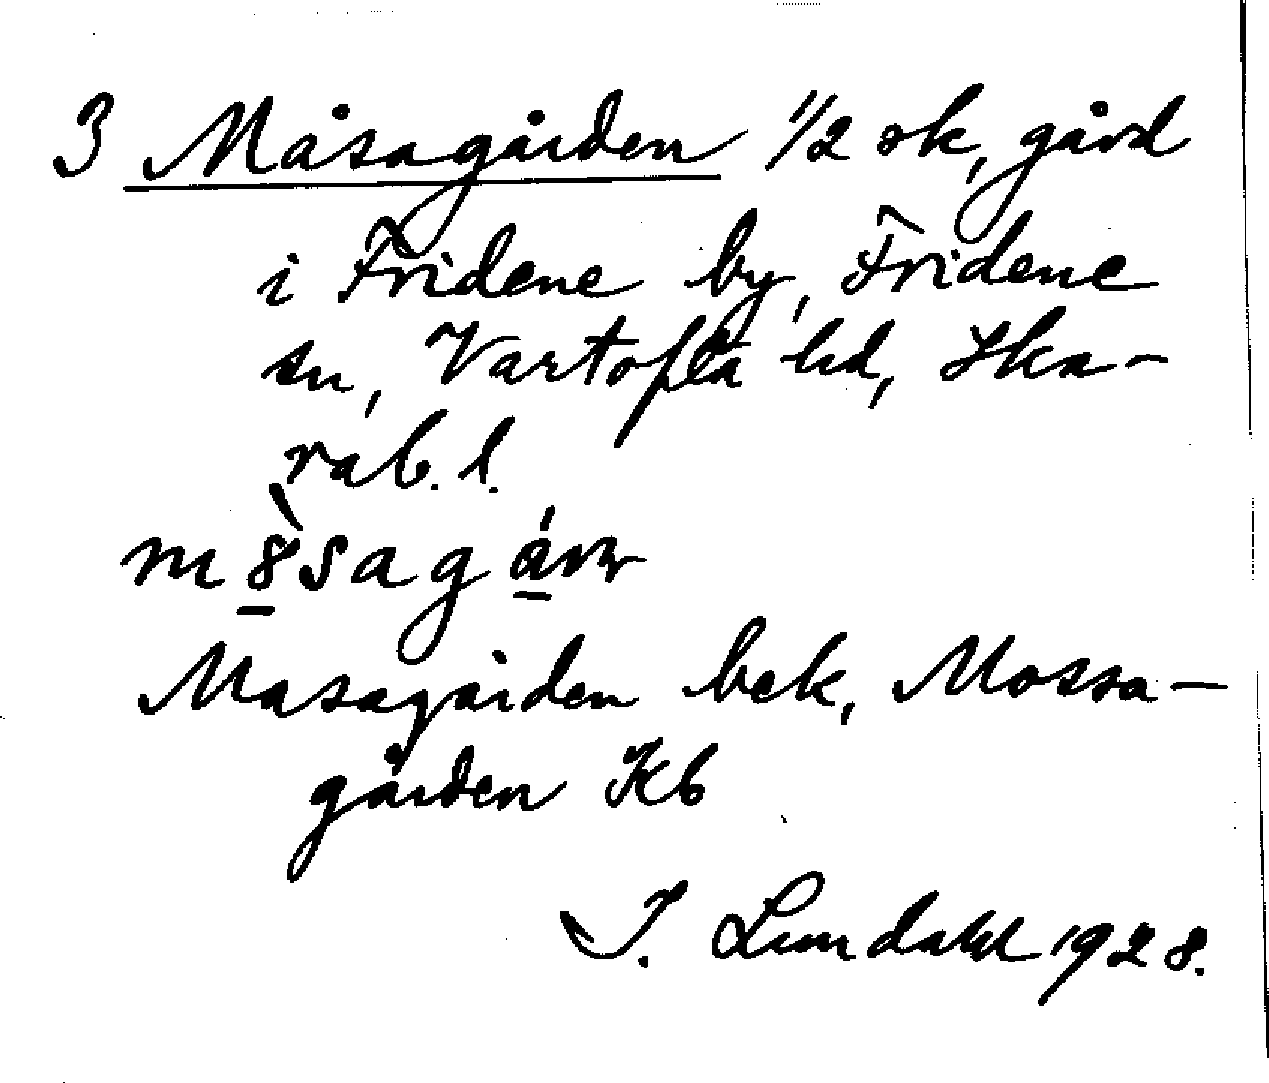 3 Måsagården 1/2 sk, gård
i Fridene by, Fridene
sn, Vartofta hd, Ska-
rab. l.
Masagården bek, Mossa-
gården Kb
I. Lundahl 1928.